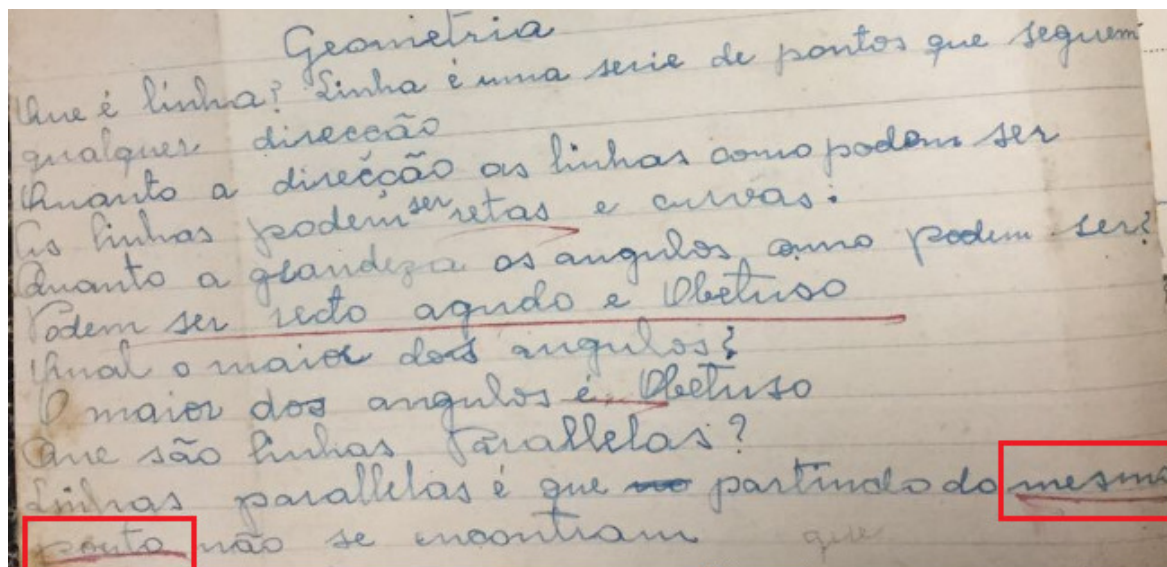 Geometria
Que é linha? Linha é uma serie de pontos que seguem
qualquer direcção
Quanto a direcção as linhas como podem ser
As linhas podem ser retas e curvas:
Quanto a grandeza os angulos como podem ser?
Podem ser recto agudo e Obetuso
Qual o maior dos angulos?
O maior dos angulos é Obetuso
Que são linhas Parallelas?
Linhas parallelas é que partindo do mesmo
ponto não se encontram que